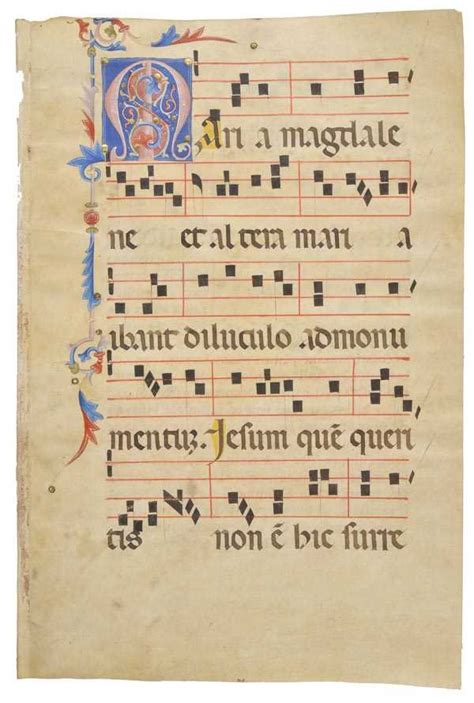 Mari a magdale
ne et altera mari a
ibant diluculo admonu
mentuz. Jesum quē queri
tis non ē hic surre